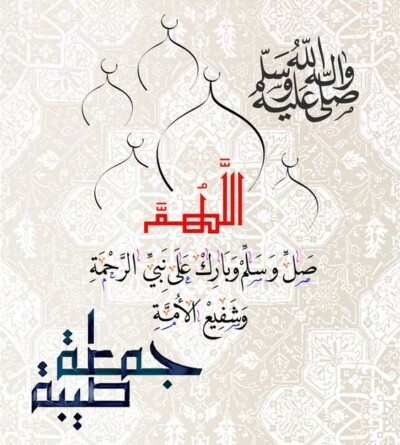 صلى الله عليه وآله وسلم
اللَّهُمَّ
صَلِّ وَسَلِّمْ وَبَارِكْ عَلَى نَبِيِّ الرَّحْمَةِ
وَشَفِيعِ الأُمَّةِ
جمعة
طيبة